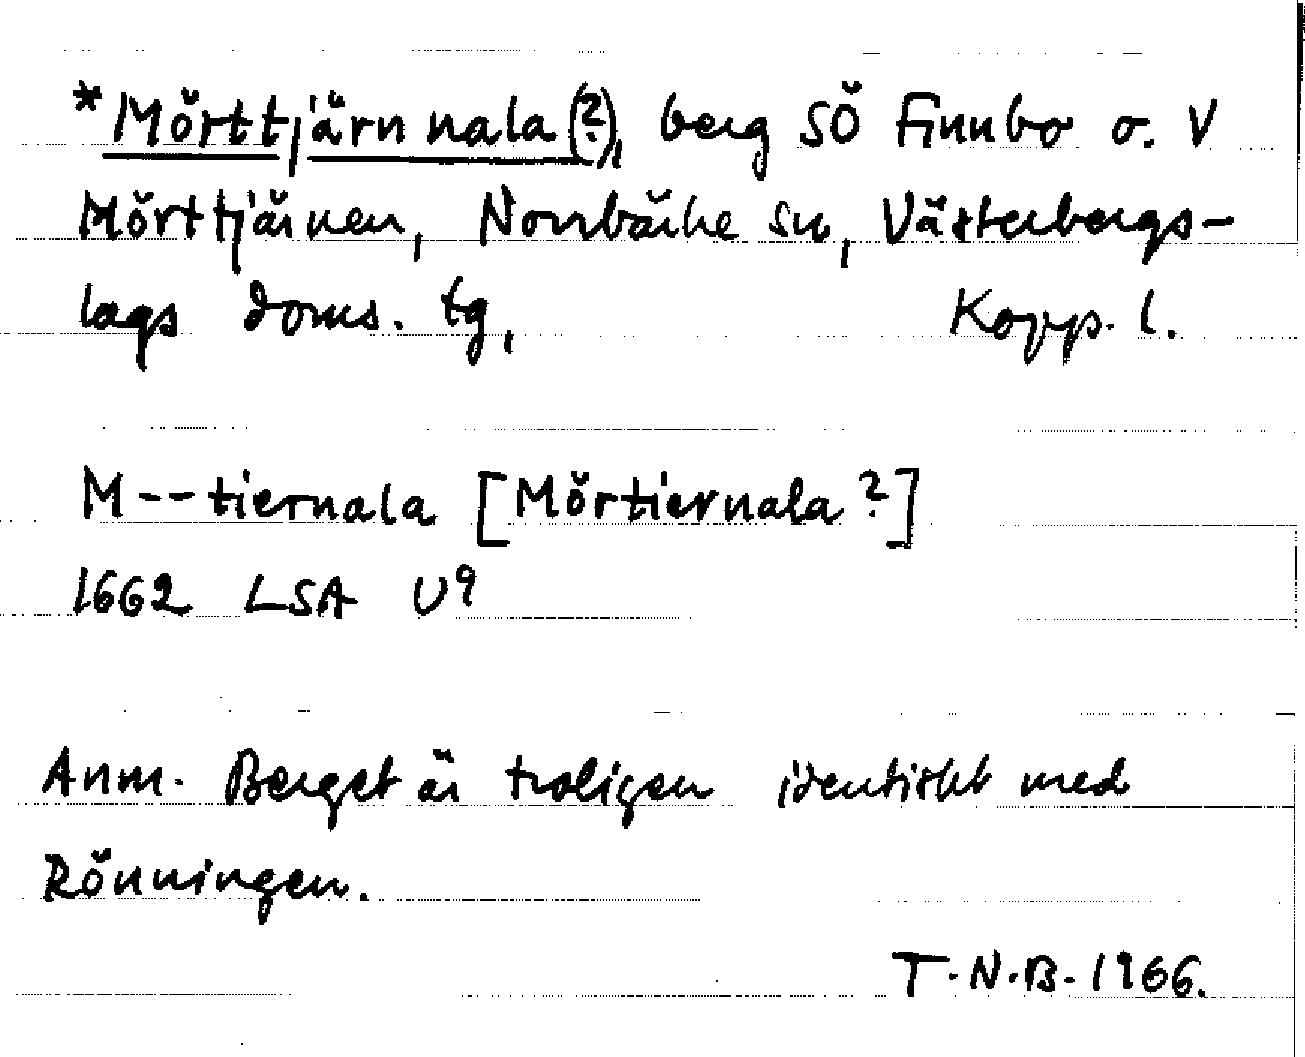 *Mörttjärnnala(?), berg SÖ Finnbo o. V
Mörttjärnen, Norrbärke sn, Västerbergs-
lags doms. tg, Kopp. l.
M--tiernala [Mörtiernala?]
1662 LSA U9
Anm. Berget är troligen identiskt med
Rönningen.
T.N.B. 1966.